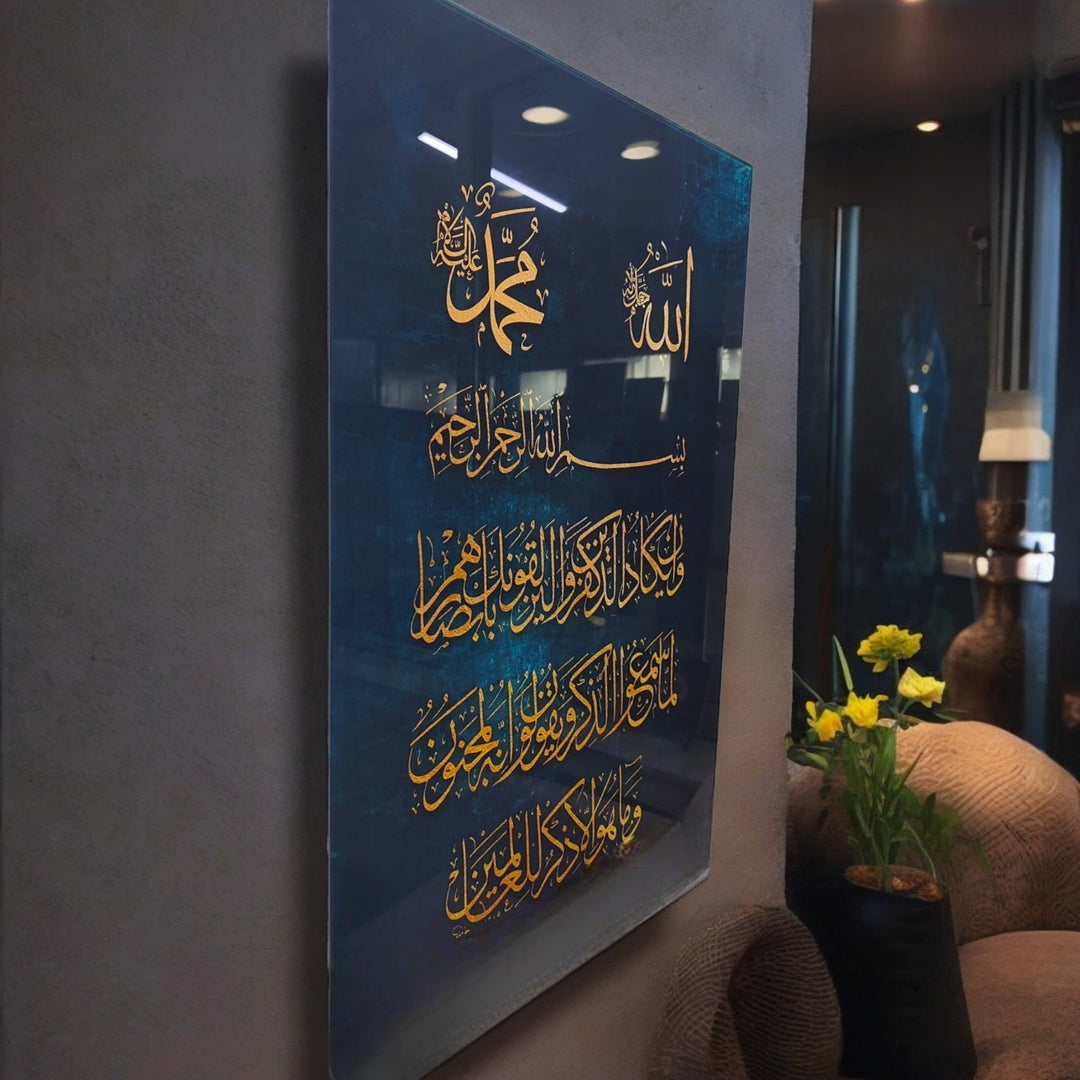 الله جل جلاله
محمد عليه السلام
بِسْمِ اللَّهِ الرَّحْمَٰنِ الرَّحِيمِ
وَإِنْ يَكَادُ الَّذِينَ كَفَرُوا لَيُزْلِقُونَكَ بِأَبْصَارِهِمْ
لَمَّا سَمِعُوا الذِّكْرَ وَيَقُولُونَ إِنَّهُ لَمَجْنُونٌ
وَمَا هُوَ إِلَّا ذِكْرٌ لِلْعَالَمِينَ